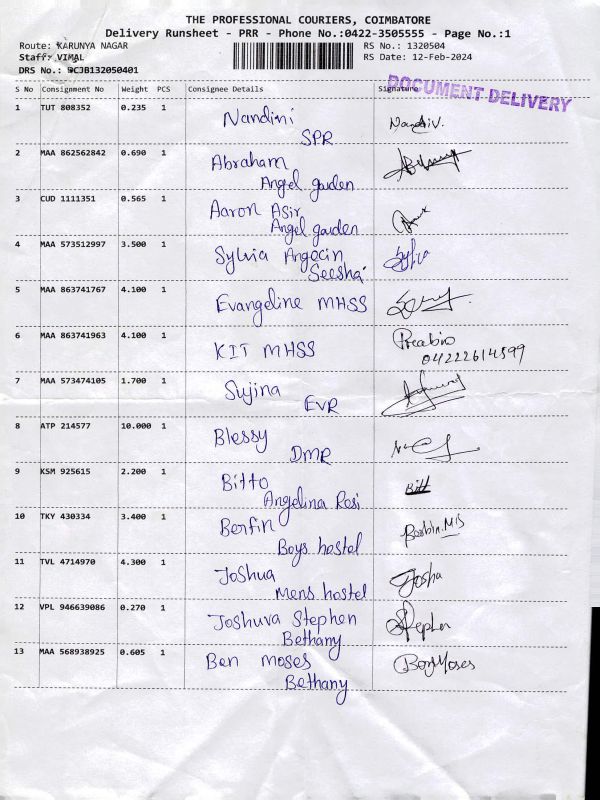 THE PROFESSIONAL COURIERS, COIMBATORE
Delivery Runsheet - PRR - Phone No.:0422-3505555 - Page No.:1
Route: KARUNYA NAGAR RS No.: 1320504
Staff: VIMAL RS Date: 12-Feb-2024
DRS No.: @CJB132050401
DOCUMENT DELIVERY
S No Consignment No Weight PCS Consignee Details Signature
1 TUT 808352 0.235 1 Nandini
SPR
2 MAA 862562842 0.690 1 Abraham
Angel garden
3 CUD 1111351 0.565 1 Aaron Asir
Angel garden
4 MAA 573512997 3.500 1 Sylvia Angecin Sylvia
Seesha
5 MAA 863741767 4.100 1 Evangeline MHSS
6 MAA 863741963 4.100 1 KIT MHSS
04222614599
7 MAA 573474105 1.700 1 Sujina
EVR
8 ATP 214577 10.000 1 Blessy
DMR
9 KSM 925615 2.200 1 Bitto Bitt
Angelina Rosi
10 TKY 430334 3.400 1 Berfin
Boys hostel
11 TVL 4714970 4.300 1 Joshua
Mens hostel
12 VPL 946639086 0.270 1 Joshuva Stephen
Bethany
13 MAA 568938925 0.605 1 Ben moses
Bethany